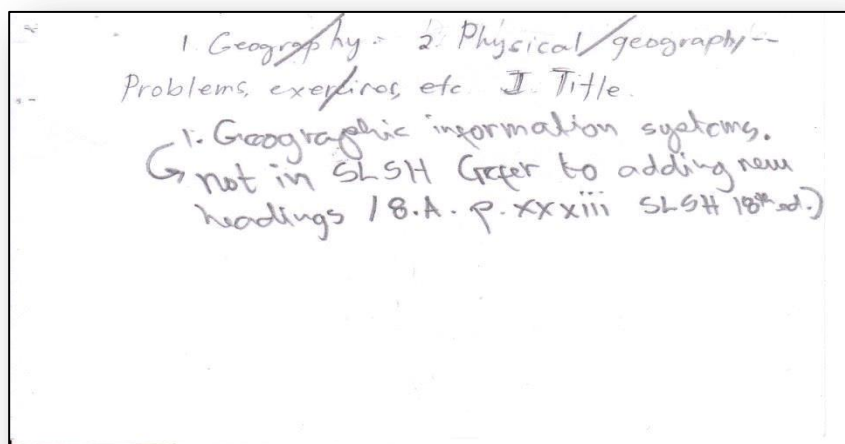 1. Geography. 2. Physical geography--
Problems, exercises, etc. I. Title.
1. Geographic information systems.
not in SLSH (refer to adding new
headings / 8.A. p. xxxiii SLSH 18th ed.)